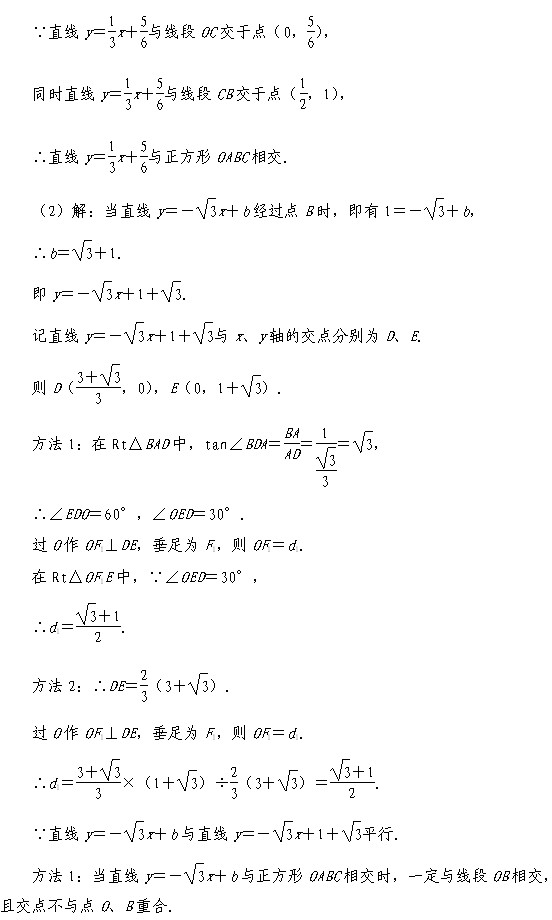 ∵直线 y=1/3x+5/6与线段 OC交于点(0，5/6)，
同时直线 y=1/3x+5/6与线段 CB交于点(1/2，1)，
∴直线 y=1/3x+5/6与正方形 OABC相交.
(2)解：当直线 y=-√3x+b经过点 B时，即有 1=-√3+b，
∴b=√3+1.
即 y=-√3x+1+√3.
记直线 y=-√3x+1+√3与 x、y轴的交点分别为 D、E.
则 D((3+√3)/3，0)，E(0，1+√3).
方法 1：在 Rt△BAD中，tan∠BDA=BA/AD=1/(√3/3)=√3，
∴∠EDO=60°，∠OED=30°.
过 O作 OF₁⊥DE，垂足为 F₁，则 OF₁=d₁.
在 Rt△OF₁E中，∵∠OED=30°，
∴d₁=(√3+1)/2.
方法 2：∴DE=2/3(3+√3).
过 O作 OF₁⊥DE，垂足为 F₁，则 OF₁=d₁.
∴d₁=(3+√3)/3×(1+√3)÷2/3(3+√3)=(√3+1)/2.
∵直线 y=-√3x+b与直线 y=-√3x+1+√3平行.
方法 1：当直线 y=-√3x+b与正方形 OABC相交时，一定与线段 OB相交，
且交点不与点 O、B重合.